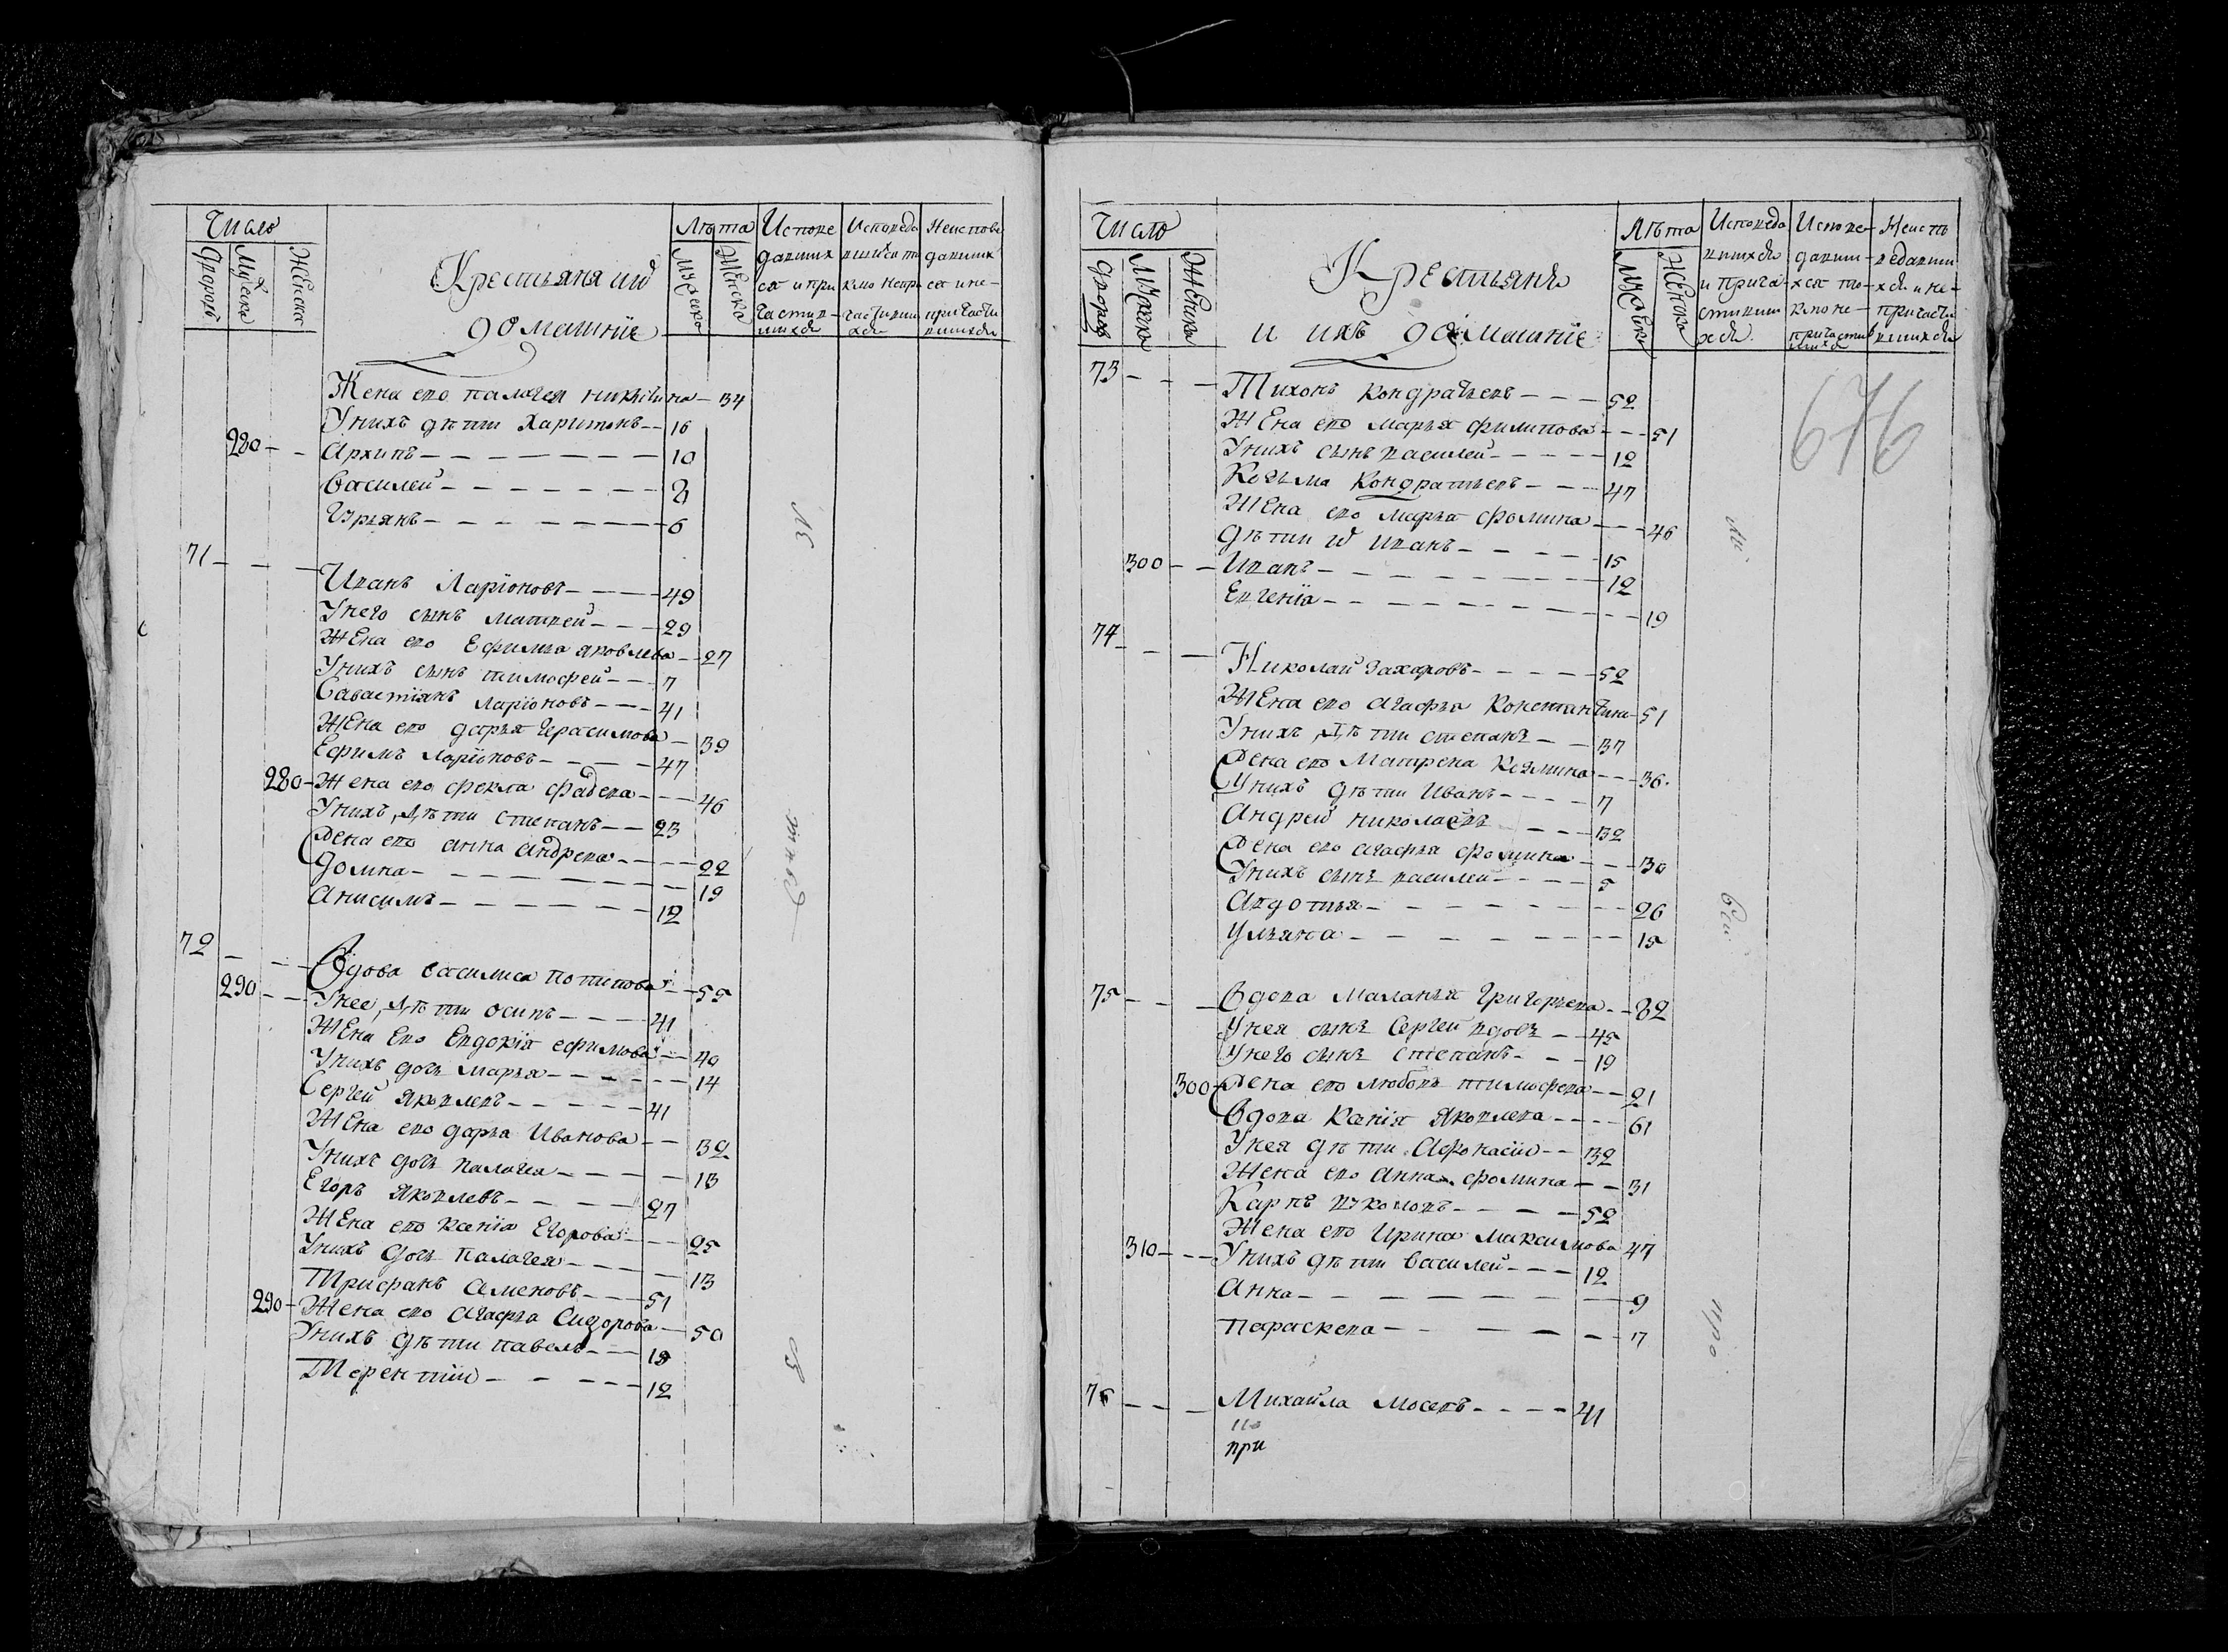 Число
Дворовъ
Мужеска
Женска
Крестьяня ихъ
домашние
Лѣта
Мужеска
Женска
Испове
давших
ся и при
частив
шихся
Исповеда
вшихся то
кмо непри
частивши
хся
Неиспове
давших
ся и не-
причасти
вшихся
Жена его палагея никитина - 34
Унихъ дѣти Харитонъ - - 16
280 - - Архипъ - - - - - - - 10
Василей - - - - - - - 8
Урьянъ - - - - - - - 6
71 - - - Иванъ Ларионовъ - - - - 49
Унего сынъ матвей - - - 29
Жена его Ефимья яковлева - - 27
Унихъ сынъ тимофей - - - 7
Савастиянъ ларионовъ - - - 41
Жена его дарья Герасимова - 39
Ефимъ ларионовъ - - - - 47
280 - Жена его фекла фадева - - - 46
Унихъ дѣти степанъ - - 23
Жена его анна андрева - - - - 22
домна - - - - - - - - 19
Анисимъ - - - - - - 12
72 - - - Вдова василиса потапова - - 55
290 - - Унее дѣти осипъ - - - - 41
Жена его Евдокия ефимова - - 40
Унихъ дочь марья - - - - - - 14
Сергей яковлевъ - - - - - 41
Жена его дарья Иванова - - 32
Унихъ дочь палагея - - - - 13
Егоръ яковлевъ - - - - - 27
Жена его ксения Егорова - - - 25
Унихъ дочь палагея - - - - - 13
Трифанъ Семеновъ - - - 51
290 - Жена его агафья Сидорова - 50
Унихъ дѣти павелъ - - - 19
Терентии - - - - - 12
Число
Дворовъ
Мужеска
Женска
Крестьянъ
и ихъ домашние
Лѣта
Мужеска
Женска
Исповеда
вшихся
и прича-
стивши
хся
Испове-
давши-
хся то-
кмо не-
причастив
шихся
Неиспо
ведавши
хся и не-
причасти
вшихся
676
73 - - - Тихонъ кондратьевъ - - - 52
Жена его марья филипова - - - 51
Унихъ сынъ василей - - - - - 12
Козьма Кондратьевъ - - - 47
Жена его марья фомина - - - 46
дѣти ихъ иванъ - - - - - 15
300 - - Иванъ - - - - - - - - 12
Евгения - - - - - - - - 19
74 - - - Николай Захаровъ - - - - - 52
Жена его агафья Константина - 51
Унихъ дѣти степанъ - - 37
Жена его Матрена Козмина - - - 36
Унихъ дѣти Иванъ - - - - 7
Андрей николаевъ - - - 32
Жена его агафья фомина - - - 30
Унихъ сынъ василей - - - - 5
Авдотья - - - - - - - - 26
Ульяна - - - - - - - - 15
75 - - - Вдова Маланья Григорьева - - 82
Унея сынъ Сергей вдовъ - - 45
Унего сынъ степанъ - - - 19
300 Жена его любовь тимофева - - 21
Вдова Ксения яковлева - - - - 61
Унея дѣти Афонасии - - 32
Жена его анна фомина - - 31
Карпъ вуколовъ - - - - 52
Жена его Ирина максимова 47
310 - - - Унихъ дѣти василей - - - 12
Анна - - - - - - - 9
параскева - - - - - - 7
76 - - - Михайла мосевъ - - - - 41
при